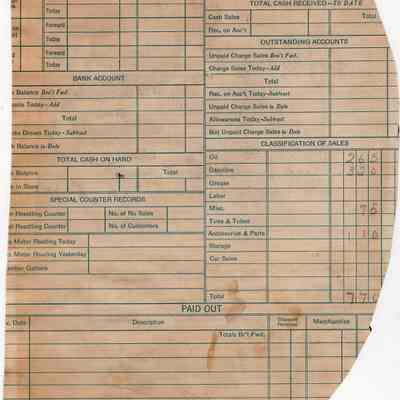 TOTAL CASH RECEIVED—TO DATE
Today
Forward
Today
Forward
Today
Cash Sales
Total
Rec. on Acc't
OUTSTANDING ACCOUNTS
Unpaid Charge Sales Bro't Fwd.
Charge Sales Today—Add
Total
Rec. on Acc't Today—Subtract
Unpaid Charge Sales to Date
Allowances Today—Subtract
Net Unpaid Charge Sales to Date
BANK ACCOUNT
Balance Bro't Fwd.
Today—Add
Total
Drawn Today—Subtract
Balance to Date
TOTAL CASH ON HAND
Total
in Store
SPECIAL COUNTER RECORDS
Reading Counter
No. of No Sales
Reading Counter
No. of Customers
Meter Reading Today
Meter Reading Yesterday
Gallons
CLASSIFICATION OF SALES
Oil 265
Gasoline
Grease
Labor
Misc. 75
Tires & Tubes
Accessories & Parts
Storage
Car Sales
Total
PAID OUT
Date
Description
Discount
Merchandise
Totals Br't Fwd.